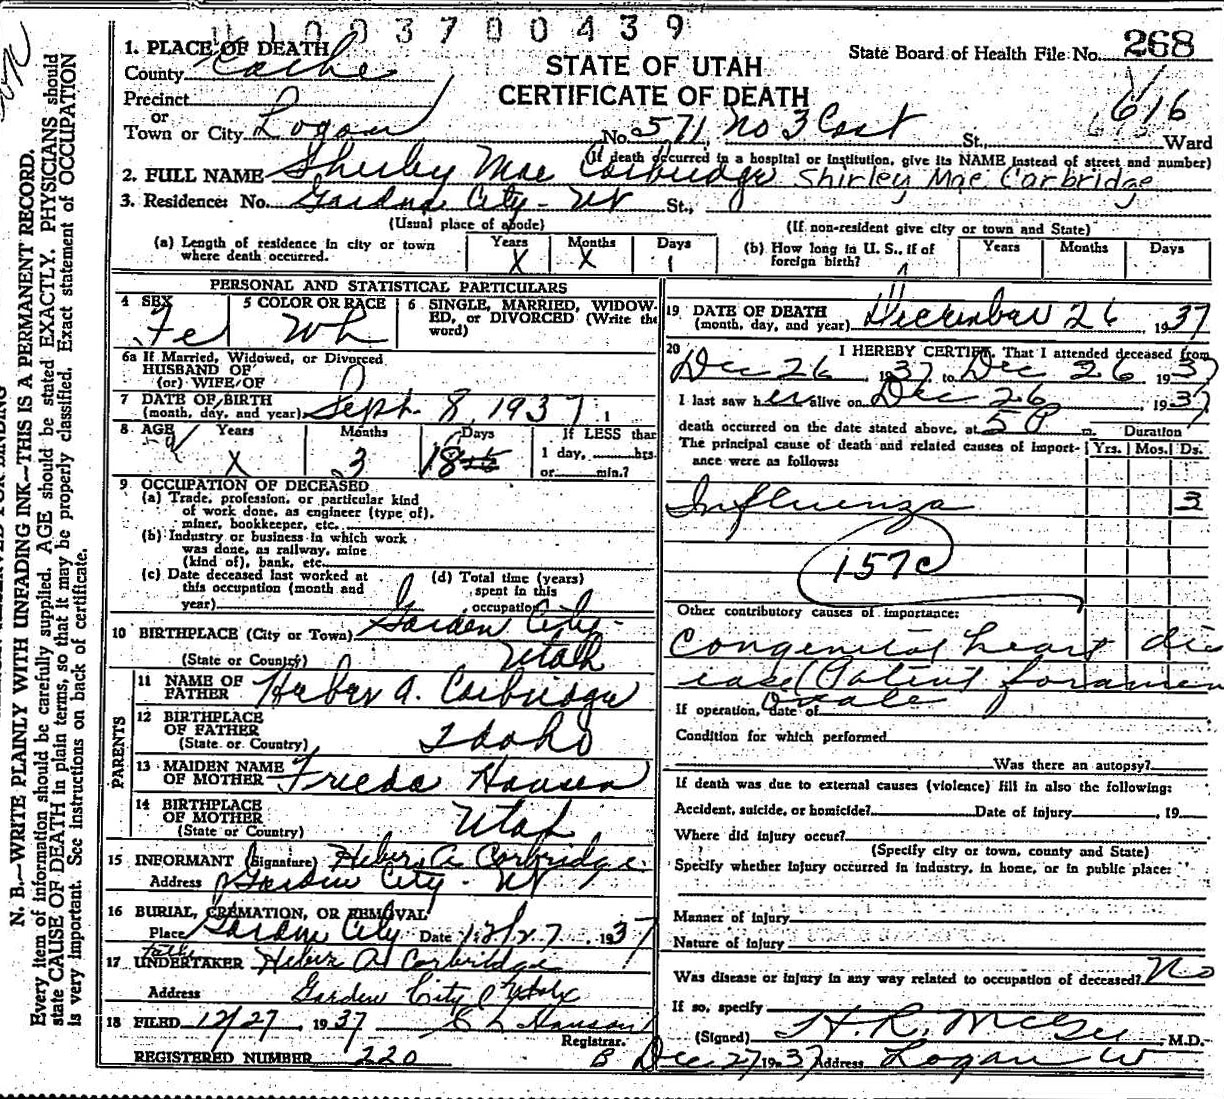 1003700439
1. PLACE OF DEATH
County Cache
State Board of Health File No. 268
STATE OF UTAH
CERTIFICATE OF DEATH
Precinct
or
Town or City Logan No. 571 No 3 East St., Ward
616
(If death occurred in a hospital or institution, give its NAME instead of street and number)
2. FULL NAME Shirley Mae Corbridge Shirley Mae Corbridge
3. Residence: No. Garden City - Ut St.,
(Usual place of abode) (If non-resident give city or town and State)
(a) Length of residence in city or town where death occurred. Years X Months X Days 1
(b) How long in U. S., if of foreign birth? Years Months Days
PERSONAL AND STATISTICAL PARTICULARS
4 SEX Fe
5 COLOR OR RACE Wh
6 SINGLE, MARRIED, WIDOW-
ED, or DIVORCED (Write the
word)
6a If Married, Widowed, or Divorced
HUSBAND OF
(or) WIFE OF
7 DATE OF BIRTH
(month, day, and year) Sept. 8, 1937
8 AGE Years X Months 3 Days 18
If LESS than
1 day, hrs.
or min.?
9 OCCUPATION OF DECEASED
(a) Trade, profession, or particular kind
of work done, as engineer (type of),
miner, bookkeeper, etc.
(b) Industry or business in which work
was done, as railway, mine
(kind of), bank, etc.
(c) Date deceased last worked at
this occupation (month and
year)
(d) Total time (years)
spent in this
occupation
10 BIRTHPLACE (City or Town) Garden City -
(State or Country) Utah
PARENTS
11 NAME OF
FATHER Heber A. Corbridge
12 BIRTHPLACE
OF FATHER
(State or Country) Idaho
13 MAIDEN NAME
OF MOTHER Frieda Hansen
14 BIRTHPLACE
OF MOTHER
(State or Country) Utah
15 INFORMANT (Signature) Heber A. Corbridge
Address Garden City - Ut
16 BURIAL, CREMATION, OR REMOVAL
Place Garden City Date 12/27 1937
father
17 UNDERTAKER Heber A Corbridge
Address Garden City Utah
18 FILED 12/27, 1937
Hanson
Registrar.
REGISTERED NUMBER 220
B
19 DATE OF DEATH
(month, day, and year) December 26 1937
20 I HEREBY CERTIFY, That I attended deceased from
Dec 26, 1937, to Dec 26 1937
I last saw her alive on Dec 26, 1937
death occurred on the date stated above, at 5 P m. Duration
The principal cause of death and related causes of import-
ance were as follows: Yrs. Mos. Ds.
Influenza 3
157c
Other contributory causes of importance:
Congenital heart dis
ease (Patent foramen
Ovale
If operation, date of
Condition for which performed
Was there an autopsy?
If death was due to external causes (violence) fill in also the following:
Accident, suicide, or homicide? Date of injury , 19
Where did injury occur?
(Specify city or town, county and State)
Specify whether injury occurred in industry, in home, or in public place:
Manner of injury
Nature of injury
Was disease or injury in any way related to occupation of deceased? No
If so, specify
(Signed) H. R. McGee M.D.
Dec 27 1937 Address Logan
N. B.—WRITE PLAINLY WITH UNFADING INK—THIS IS A PERMANENT RECORD.
Every item of information should be carefully supplied. AGE should be stated EXACTLY. PHYSICIANS should
state CAUSE OF DEATH in plain terms, so that it may be properly classified. Exact statement of OCCUPATION
is very important. See instructions on back of certificate.